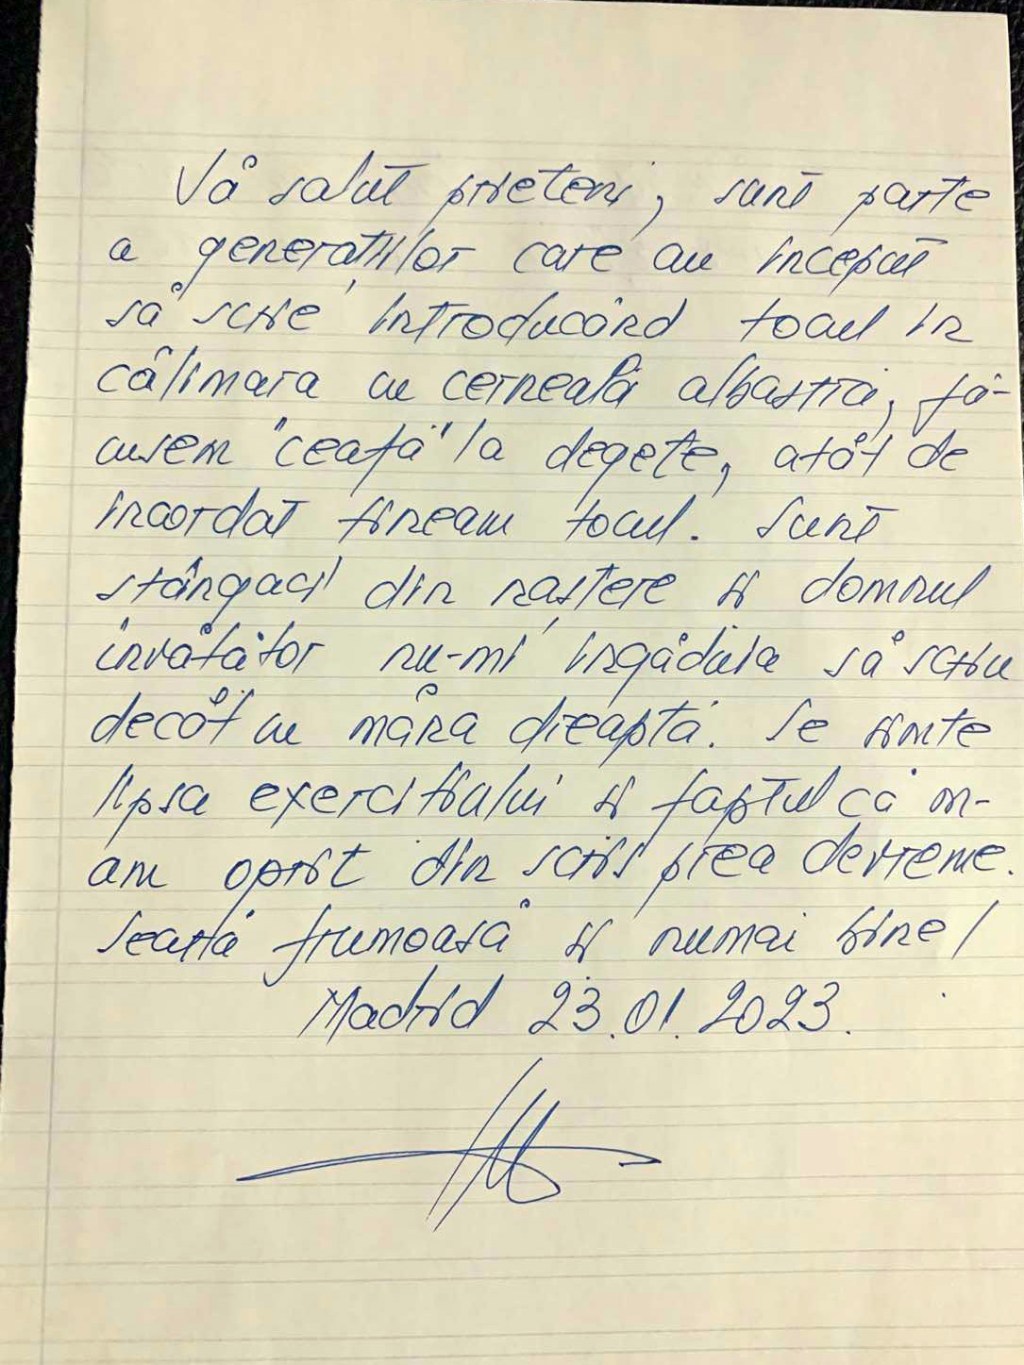 Vă salut prieteni, sunt parte
a generațiilor care au început
să scrie introducând tocul în
călimara cu cerneală albastră, fă-
cusem "ceață" la degete, atât de
încordat țineam tocul. Sunt
stângaci din naștere și domnul
învățător nu-mi îngăduia să scriu
decât cu mâna dreaptă. Se simte
lipsa exercițiului și faptul că m-
am oprit din scris prea devreme.
Seară frumoasă și numai bine!
Madrid 23.01.2023.